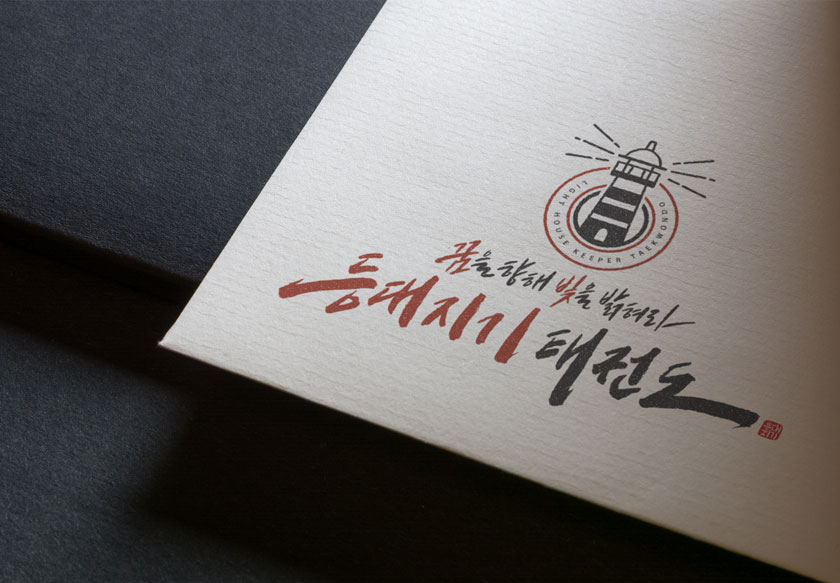 LIGHT HOUSE KEEPER TAEKWONDO
꿈을 향해 빛을 밝혀라
등대지기 태권도